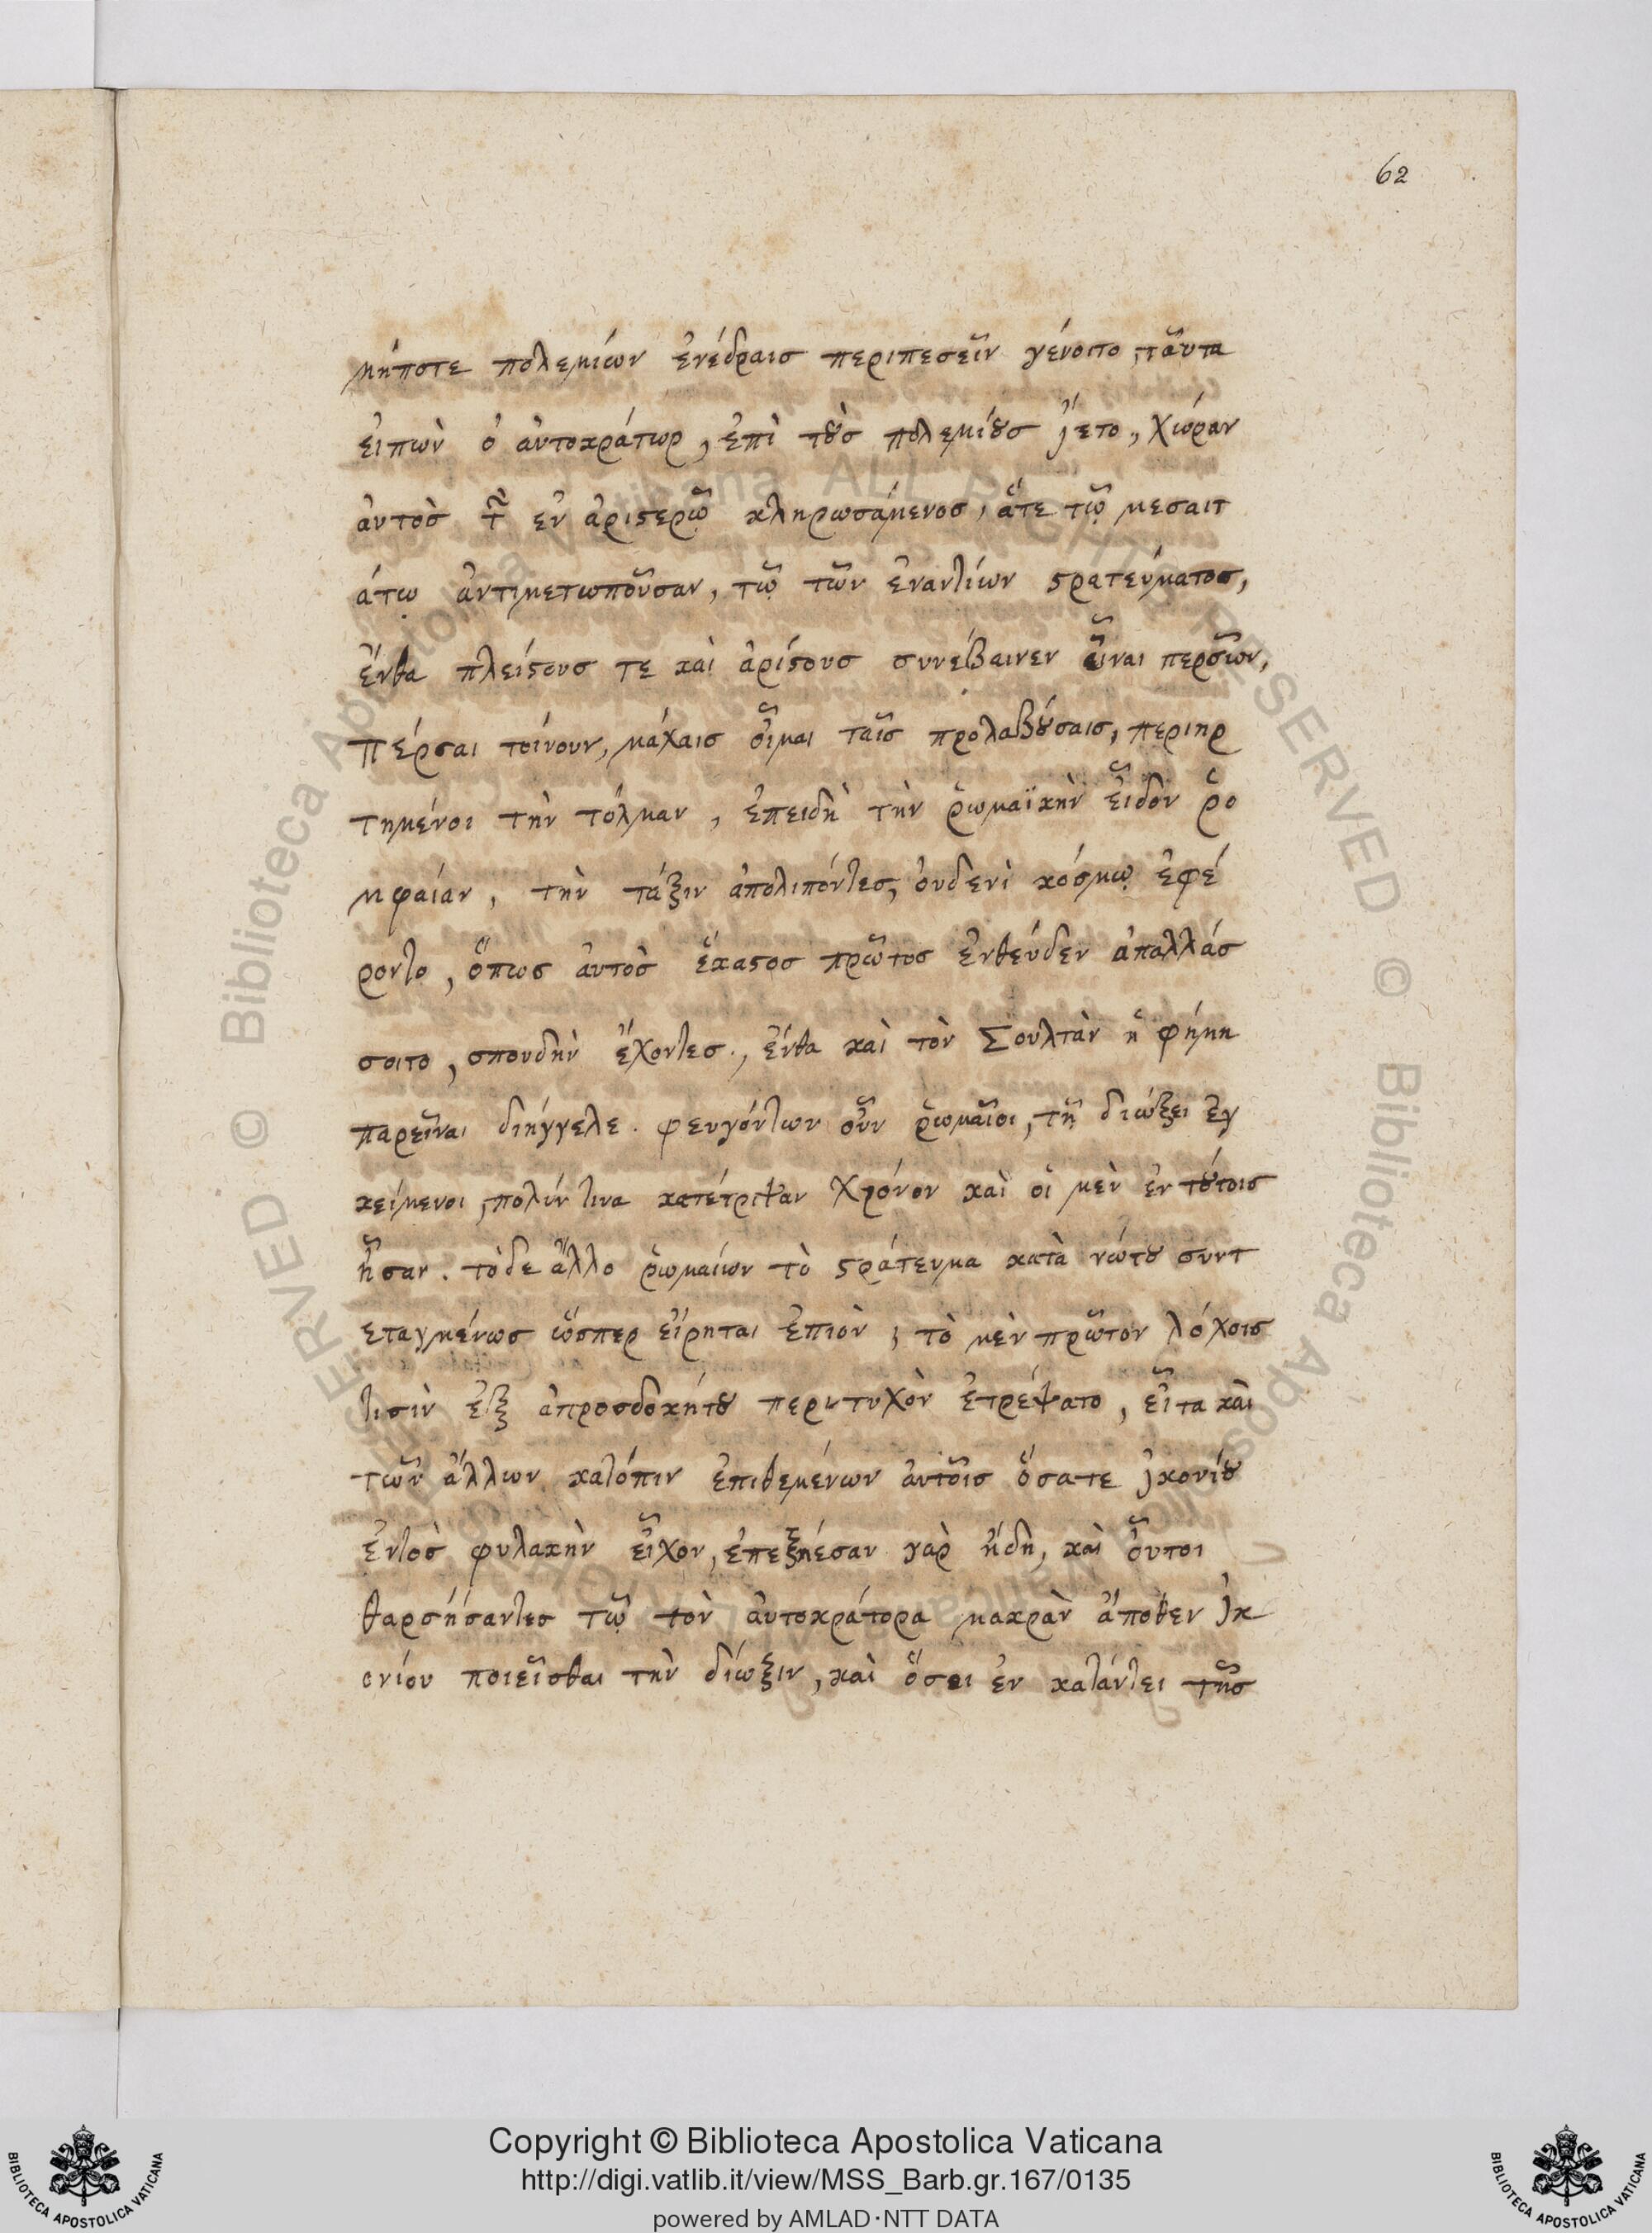 62
μήποτε πολεμίων ἐνέδραισ περιπεσεῖν γένοιτο, ταῦτα
ἐιπὼν ὁ ἀυτοκράτωρ, ἐπὶ τοὺσ πολεμίουσ ἵετο, χώραν
ἀυτὸσ ἐν ἀριστερῷ κληρωσάμενοσ, ἅτε τῷ μεσαιτ
άτῳ ἀντιμετωποῦσαν, τῷ τῶν ἐναντίων στρατεύματοσ,
ἔνθα πλείστουσ τε καὶ ἀρίστουσ συνέβαινεν εἶναι περσῶν,
Πέρσαι τοίνουν, μάχαισ οἶμαι ταῖσ προλαβούσαισ, περιηρ
τημένοι τὴν τόλμαν, ἐπειδὴ τὴν ῥωμαϊκὴν εἶδον ῥο
μφαίαν, τὴν τάξιν ἀπολιπόντεσ, ὀυδενὶ κόσμῳ ἐφέ
ροντο, ὅπωσ ἀυτὸσ ἕκαστοσ πρῶτοσ ἐνθεύδεν ἀπαλλάσ
σοιτο, σπουδὴν ἔχοντεσ., ἔνθα καὶ τὸν Σουλτὰν ἡ φήμη
παρεῖναι διήγγελε. φευγόντων οὖν ῥωμαῖοι, τῇ διώξει ἐγ
κείμενοι, πολύν τινα κατέτριψαν χρόνον καὶ οἱ μὲν ἐν τούτοισ
ἦσαν. τὸ δε ἄλλο ῥωμαίων τὸ στράτευμα κατὰ νώτου συντ
εταγμένωσ ὥσπερ εἴρηται ἐπιὸν, τὸ μὲν πρῶτον λόχοισ
τισὶν ἐξ ἀπροσδοκήτου περιτυχὸν ἐτρέψατο, εἶτα καὶ
τῶν ἄλλων κατόπιν ἐπιθεμένων ἀυτοῖσ ὅσατε ἰκονίου
ἐντὸσ φυλακὴν εἶχον, ἐπεξῄεσαν γαρ ἤδη, καὶ οὗτοι
θαρσήσαντεσ τῷ τὸν ἀυτοκράτορα μακρὰν ἄποθεν ἰκ
ονίου ποιεῖσθαι τὴν δίωξιν, καὶ ὅσοι ἐν κατάντει τῆσ
Copyright © Biblioteca Apostolica Vaticana
http://digi.vatlib.it/view/MSS_Barb.gr.167/0135
powered by AMLAD·NTT DATA